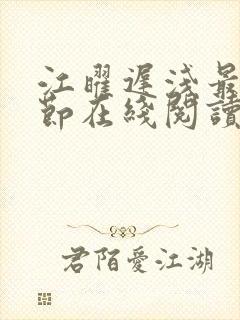 江曜遲淺最
節在綫閱讀
君陌愛江湖